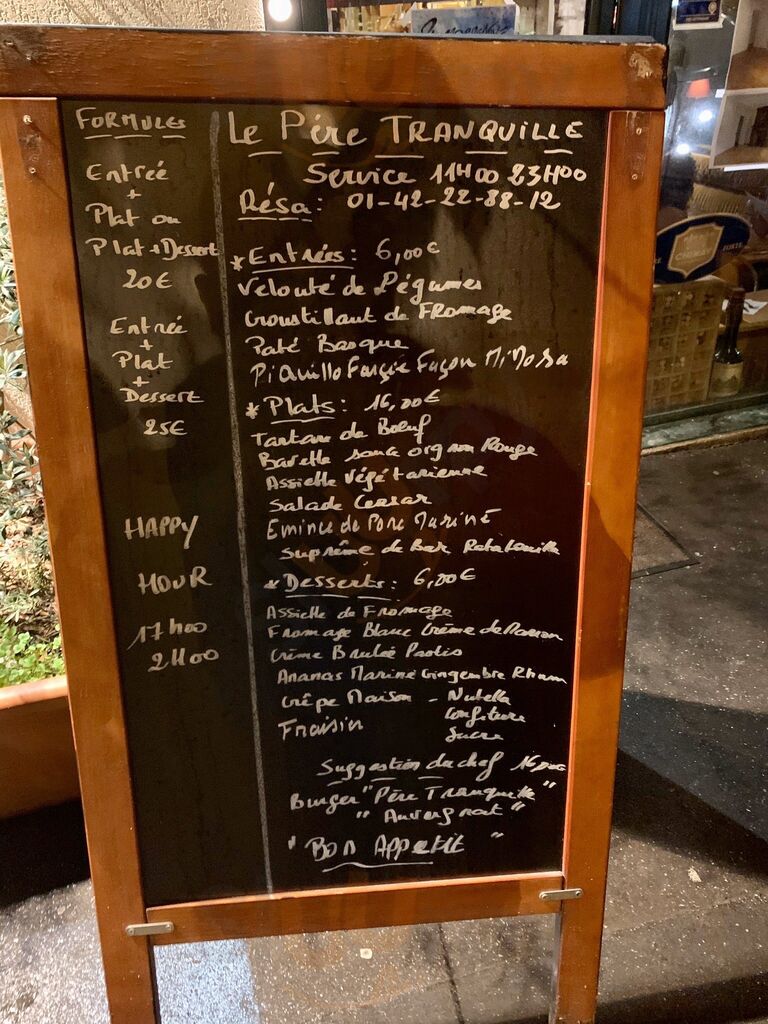 FORMULES
Entrée
+
Plat ou
Plat + Dessert
20€
Entrée
+
Plat
+
Dessert
25€
HAPPY
HOUR
17h00
21h00
Le Père TRANQUILLE
Service 11H00 23H00
Résa: 01-42-22-88-12
* Entrées: 6,00€
Velouté de Légumes
Croustillant de Fromage
Paté Basque
Piquillo Farçie Façon Mimosa
* Plats: 16,00€
Tartare de Boeuf
Bavette sauce orgnon Rouge
Assiette végétarienne
Salade Cesar
Emincé de Porc Mariné
Suprême de Bar Ratatouille
* Desserts: 6,00€
Assiette de Fromage
Fromage Blanc Crème de Marron
Crème Brulée
Ananas Mariné Gingembre Rhum
Crêpe Maison - Nutella
Confiture
Sucre
Fraisier
Suggestion du chef 16,00€
Burger "Père Tranquille"
" Auvergnat "
"Bon Appetit"